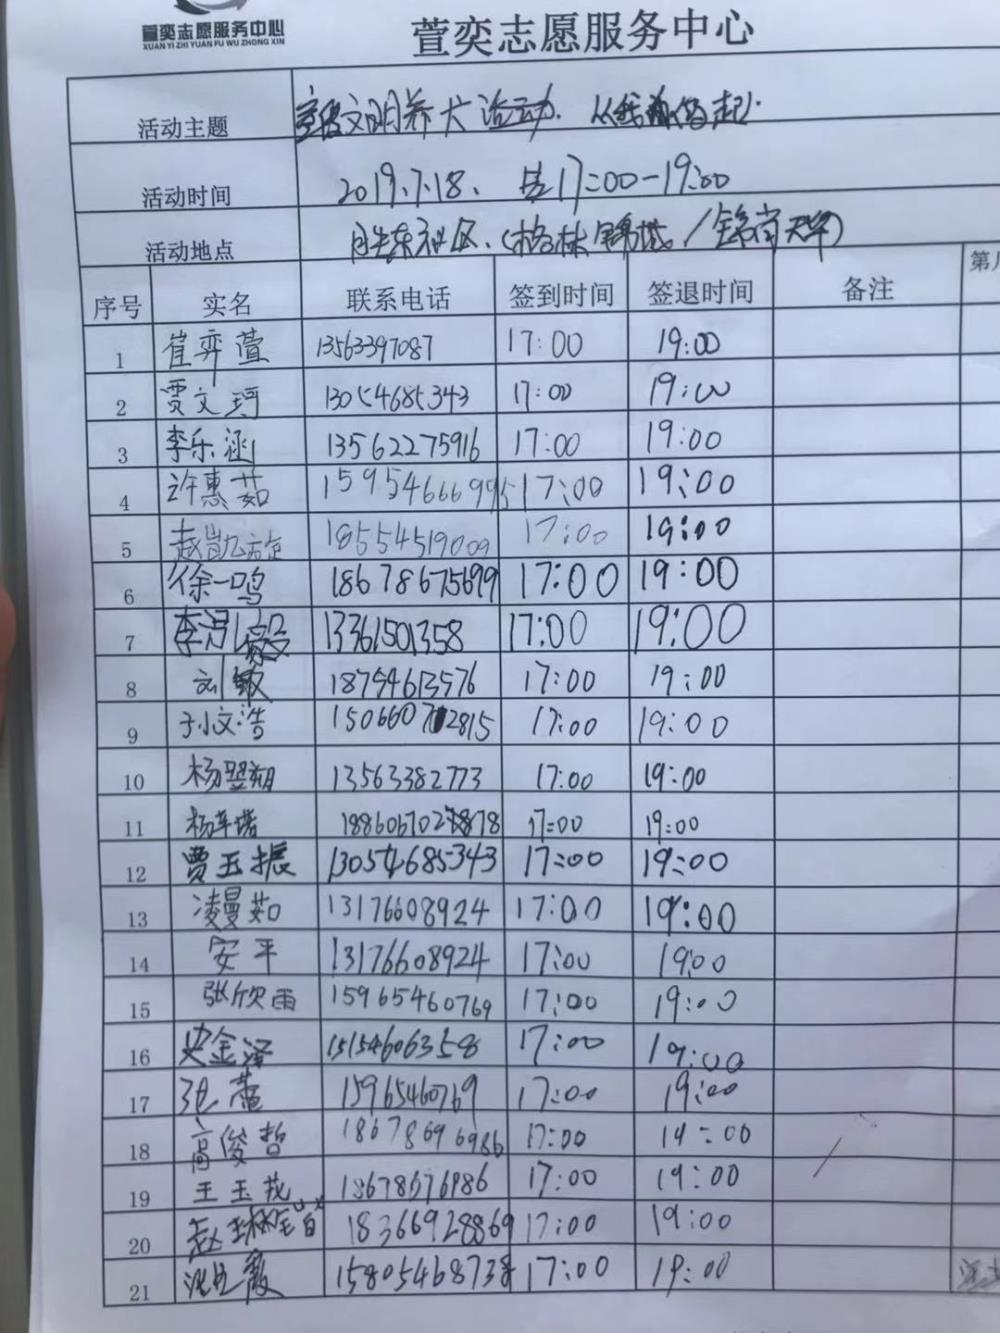 萱奕志愿服务中心
XUAN YI ZHI YUAN FU WU ZHONG XIN
萱奕志愿服务中心
活动主题 宣传文明养犬活动.从我做起.
活动时间 2019.7.18. 17:00-19:00
活动地点 胜东社区.(格林锦城/锦尚天华)
序号 实名 联系电话 签到时间 签退时间 备注 第
1 崔弈萱 13563397087 17:00 19:00
2 贾文珂 13054685343 17:00 19:00
3 李乐涵 13562275916 17:00 19:00
4 许惠茹 15954666995 17:00 19:00
5 赵凯旋 18554519009 17:00 19:00
6 徐一鸣 18678675699 17:00 19:00
7 李 13361501358 17:00 19:00
8 刘敏 18754613576 17:00 19:00
9 文浩 15066072815 17:00 19:00
10 杨翌翔 13563382773 17:00 19:00
11 杨 17:00 19:00
12 贾玉振 13054685343 17:00 19:00
13 凌曼茹 13176608924 17:00 19:00
14 安平 13176608924 17:00 19:00
15 张欣雨 15965460769 17:00 19:00
16 史金泽 15154606358 17:00 19:00
17 张萱 15965460769 17:00 19:00
18 高俊哲 18678696986 17:00 19:00
19 王玉 18678676986 17:00 19:00
20 赵 18366928869 17:00 19:00
21 15805468738 17:00 19:00